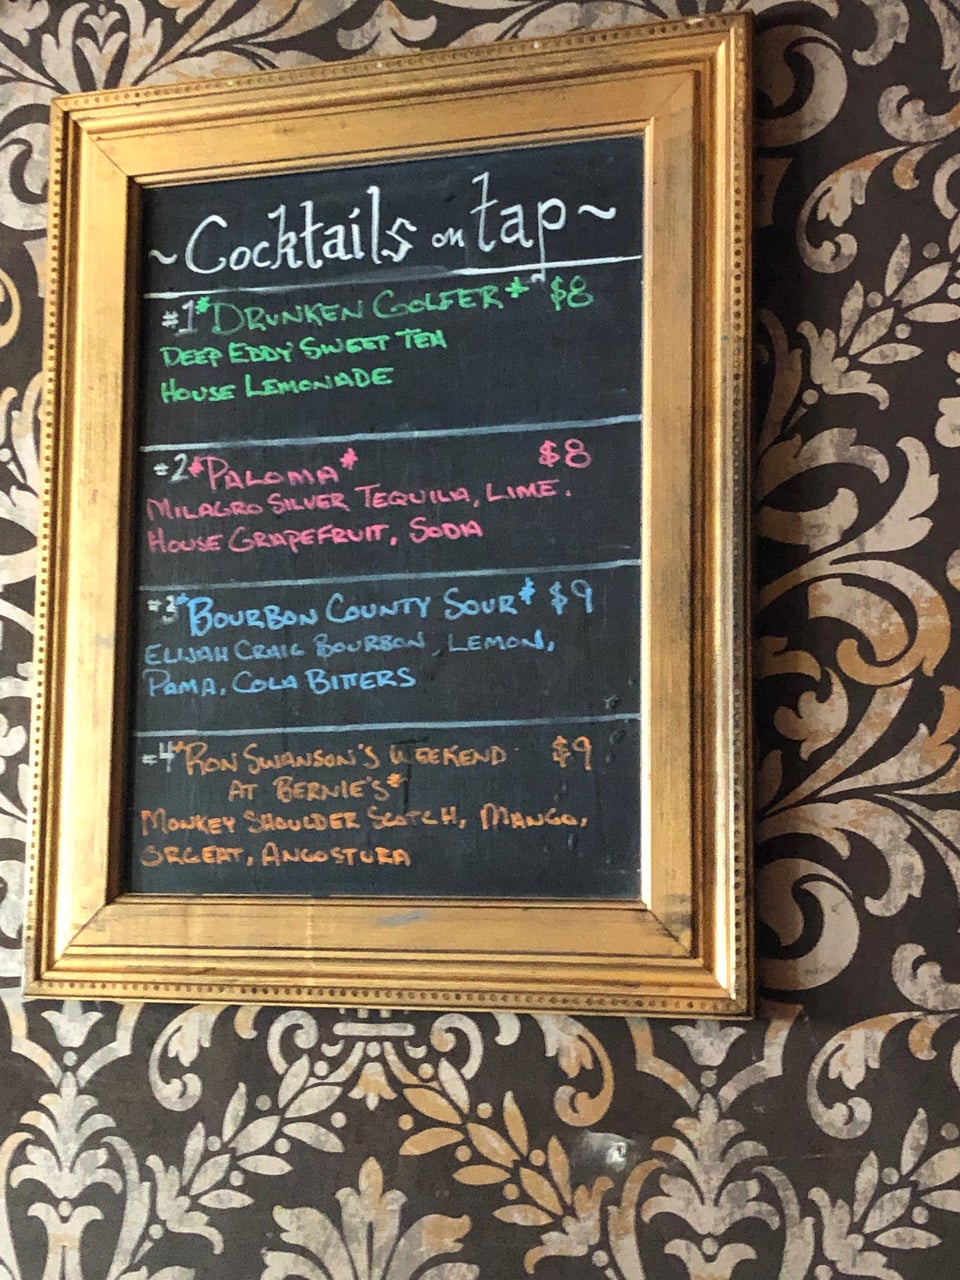 ~Cocktails on tap~
#1*DRUNKEN GOLFER* $8
DEEP EDDY SWEET TEA
HOUSE LEMONADE
#2*PALOMA* $8
MILAGRO SILVER TEQUILA, LIME.
HOUSE GRAPEFRUIT, SODA
#3*BOURBON COUNTY SOUR* $9
ELIJAH CRAIG BOURBON, LEMON,
PAMA, COLA BITTERS
#4*RON SWANSON'S WEEKEND $9
AT BERNIE'S*
MONKEY SHOULDER SCOTCH, MANGO,
ORGEAT, ANGOSTURA